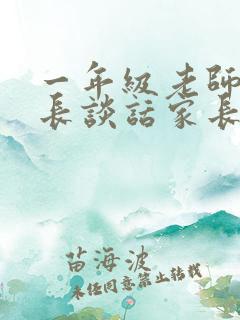 一年級老師
長談話家長
苗海波
未经同意禁止转载